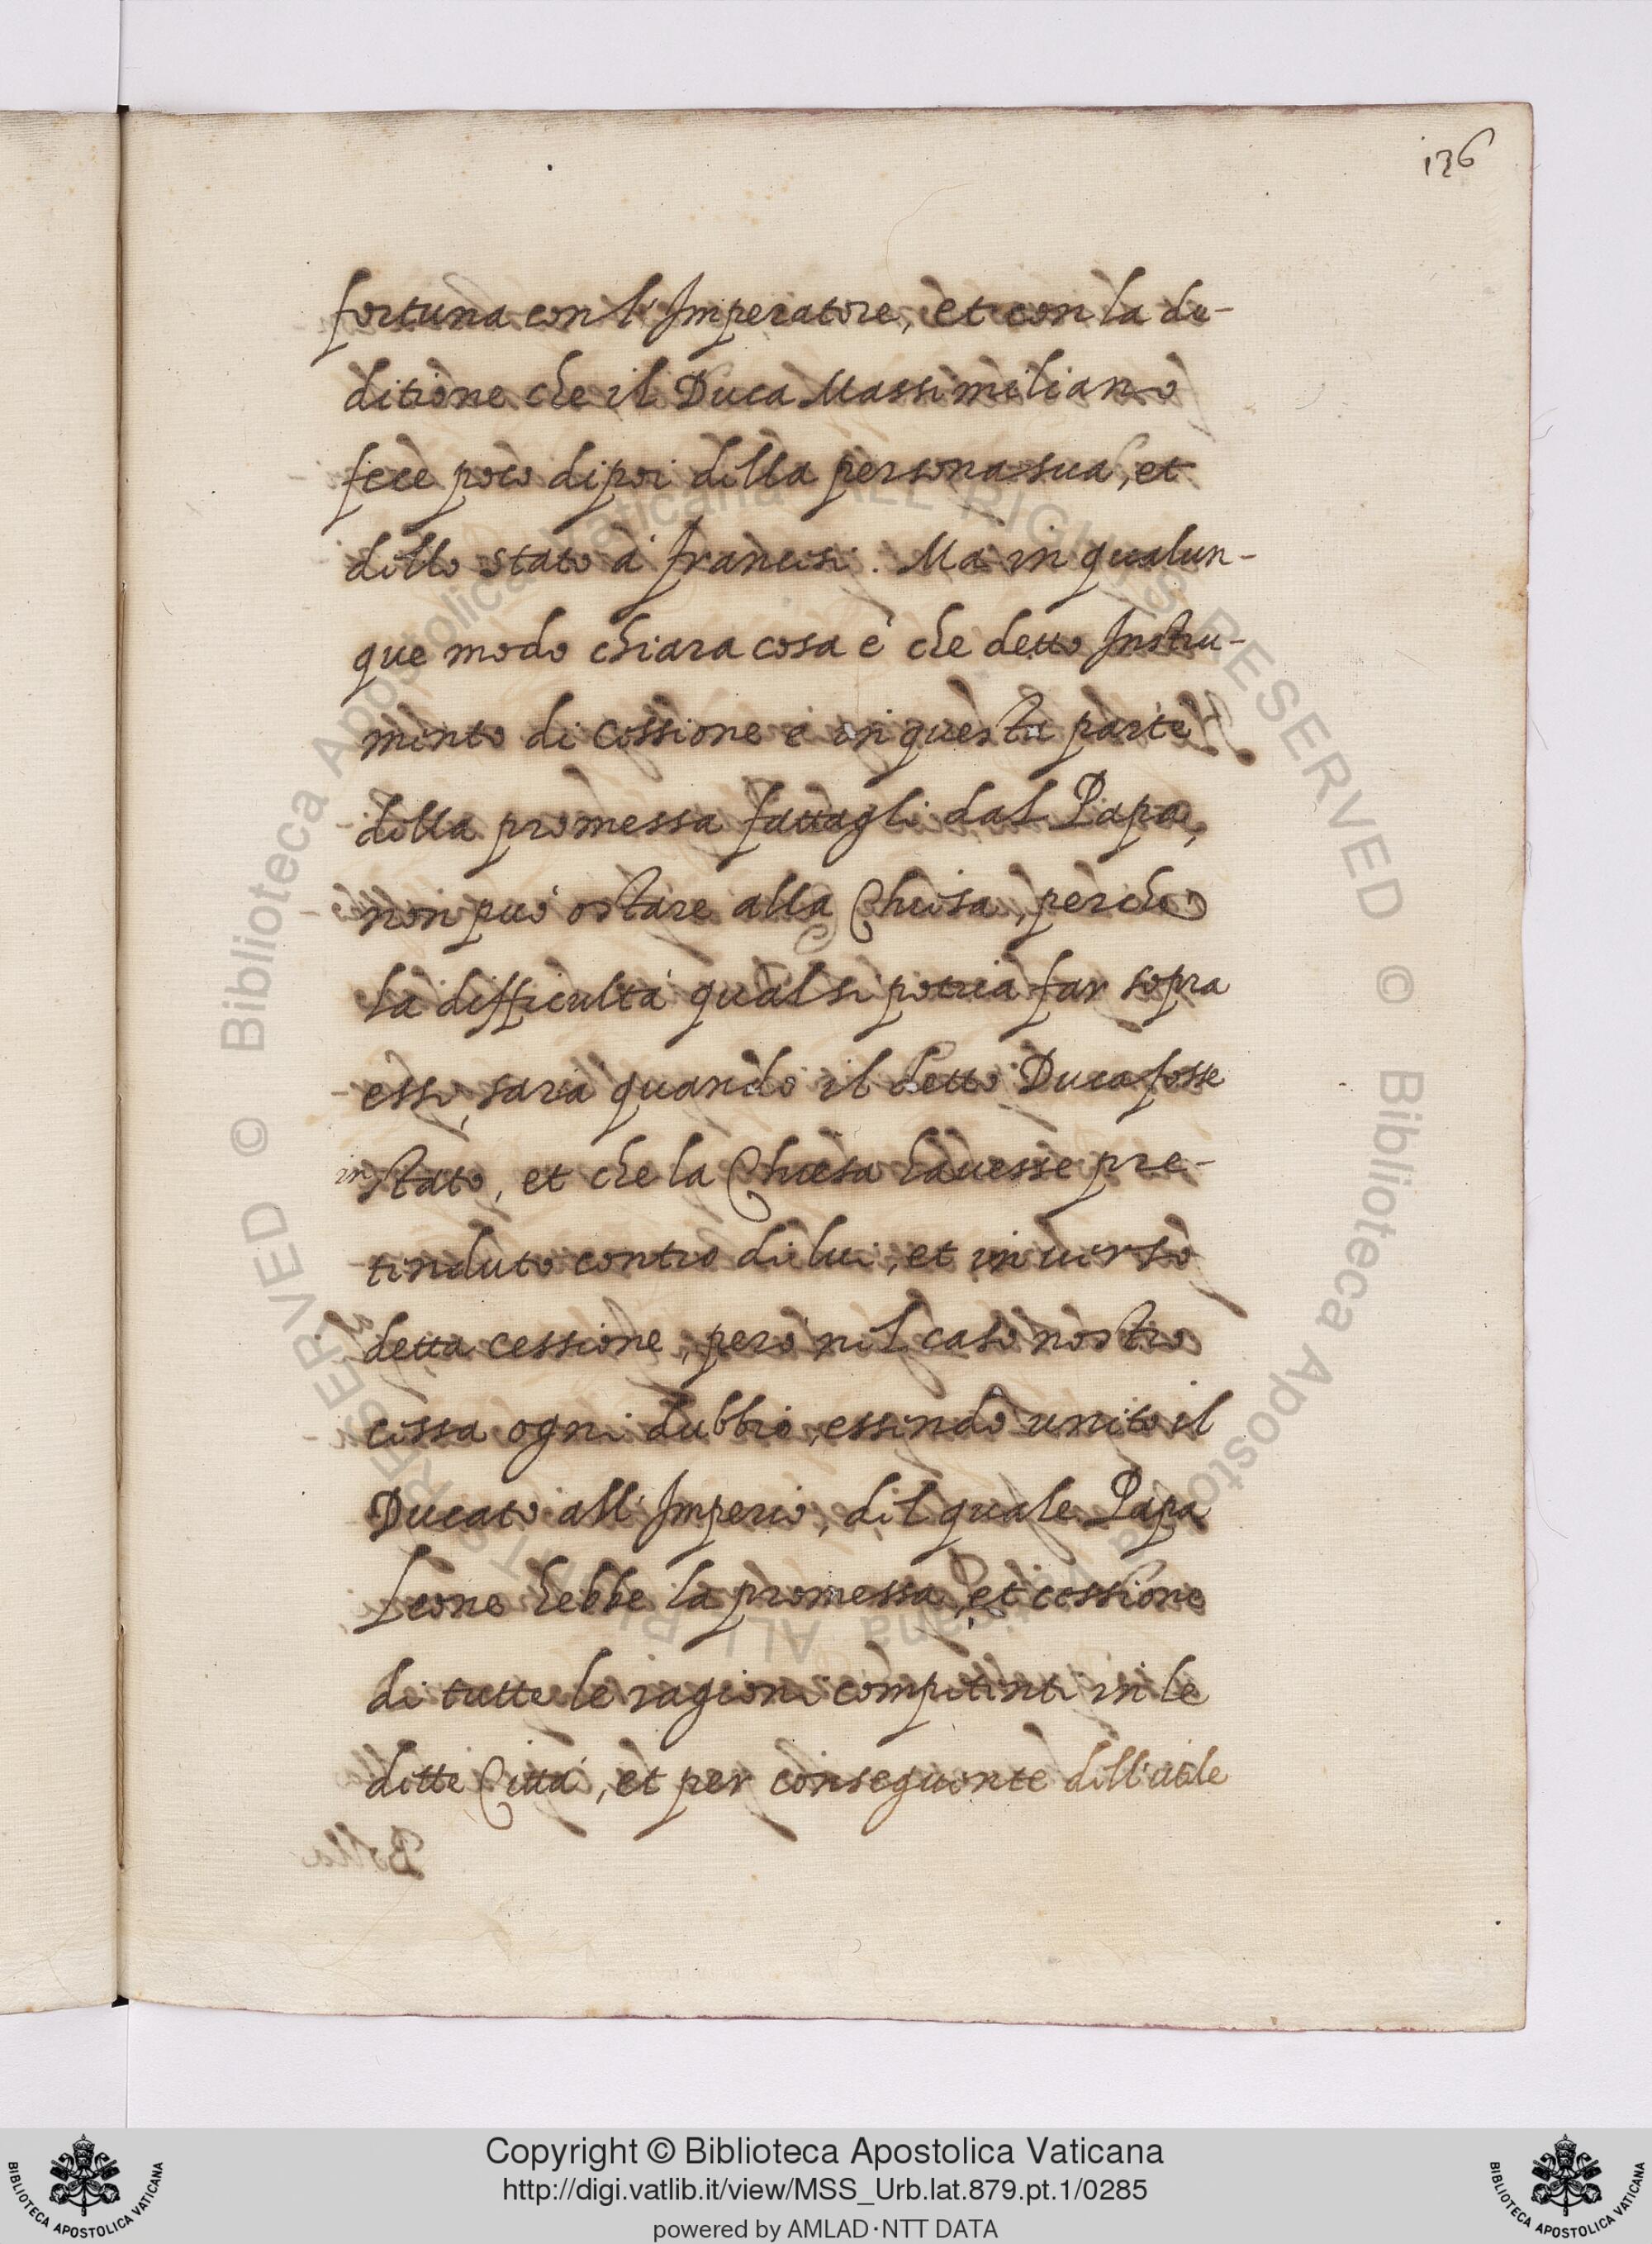 136
fortuna con l'Imperatore, et con la de-
ditione che il Duca Massimiliano
fece poco dipoi della persona sua, et
dello stato à francesi. Ma in qualun-
que modo chiara cosa è che detto Instru-
mento di cessione è in questa parte
della promessa fattagli dal Papa,
non può ostare alla Chiesa, perche
la difficultà qual si potria far sopra
esso, saria quando il detto Duca fosse
in stato, et che la Chiesa havesse pre-
tenduto contro di lui, et in verso
detta cessione, però nel caso nostro
cessa ogni dubbio, essendo unito il
Ducato all'Imperio, del quale Papa
Leone hebbe la promessa, et cessione
di tutte le ragioni competenti in le
dette Città, et per conseguente dell'utile
© Biblioteca Apostolica Vaticana ALL RIGHTS RESERVED © Biblioteca Apostolica Vaticana ALL RIGHTS RESERVED
Copyright © Biblioteca Apostolica Vaticana
http://digi.vatlib.it/view/MSS_Urb.lat.879.pt.1/0285
powered by AMLAD·NTT DATA
BIBLIOTECA APOSTOLICA VATICANA
BIBLIOTECA APOSTOLICA VATICANA